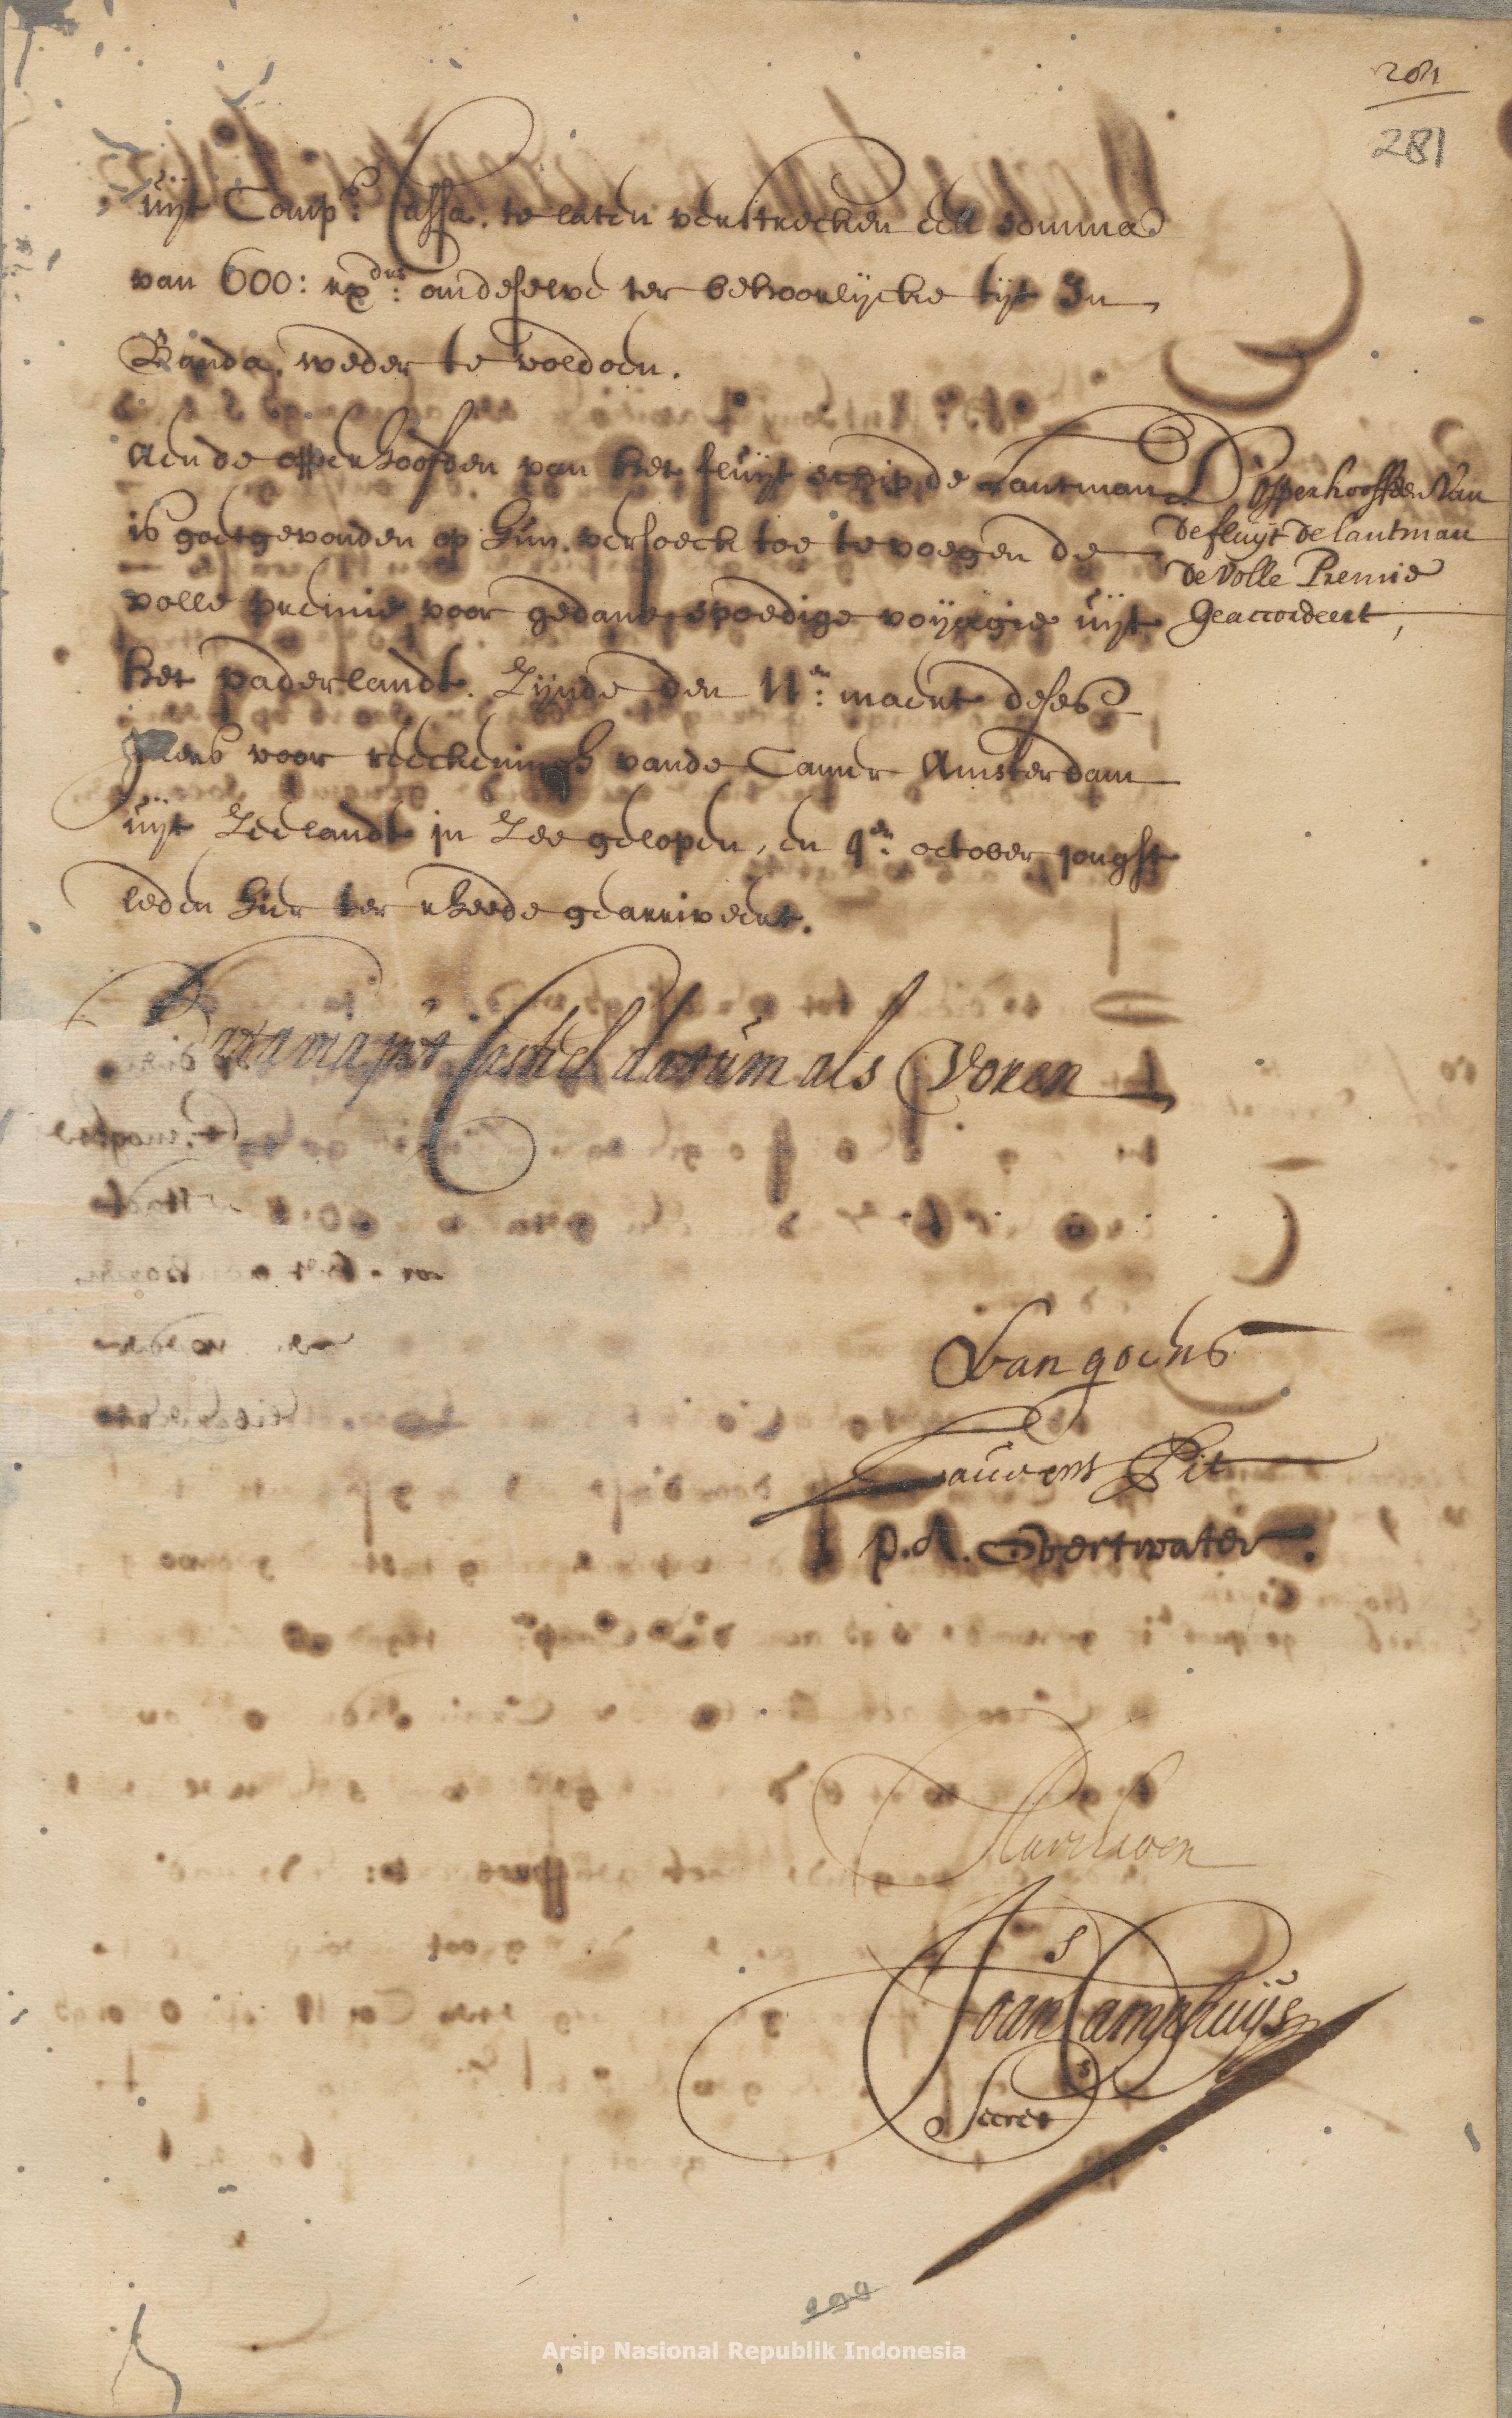 281
281
uijt Comp:s Cassa te laten verstrecken een somma
van 600: rx:drs omdeselve ter behoorlijcke tijt In
Banda weder te voldoen.
Aende opperhoofden van het fluijt schip de Lantman
is goetgevonden op hun versoeck toe te voegen de
volle premie voor gedane spoedige voijagie uijt
het vaderlandt. Zijnde den 11:en maert deses
Jaers voor reeckeningh vande Camer Amsterdam
uijt Zeelandt in Zee gelopen, en 9:en october jonghst
leden hier ter rheede gearriveert.
D'opperhooffden Van
de fluijt de Lantman
de volle Premie
Geaccordeert,
Batavia int Casteel datum als Voren
Van goens
Lauvens Pit
P.A. Overtwater.
Joan Camphuijs
Secret:s
Arsip Nasional Republik Indonesia